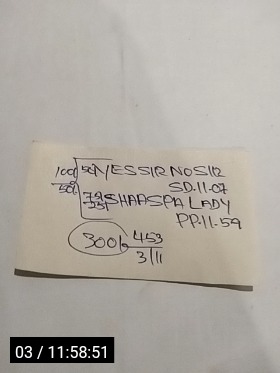 100 50 YES SIR NO SIR
50 SD.11-07
SHAASPA LADY
PP.11-59
300 453
3/11
03 / 11:58:51